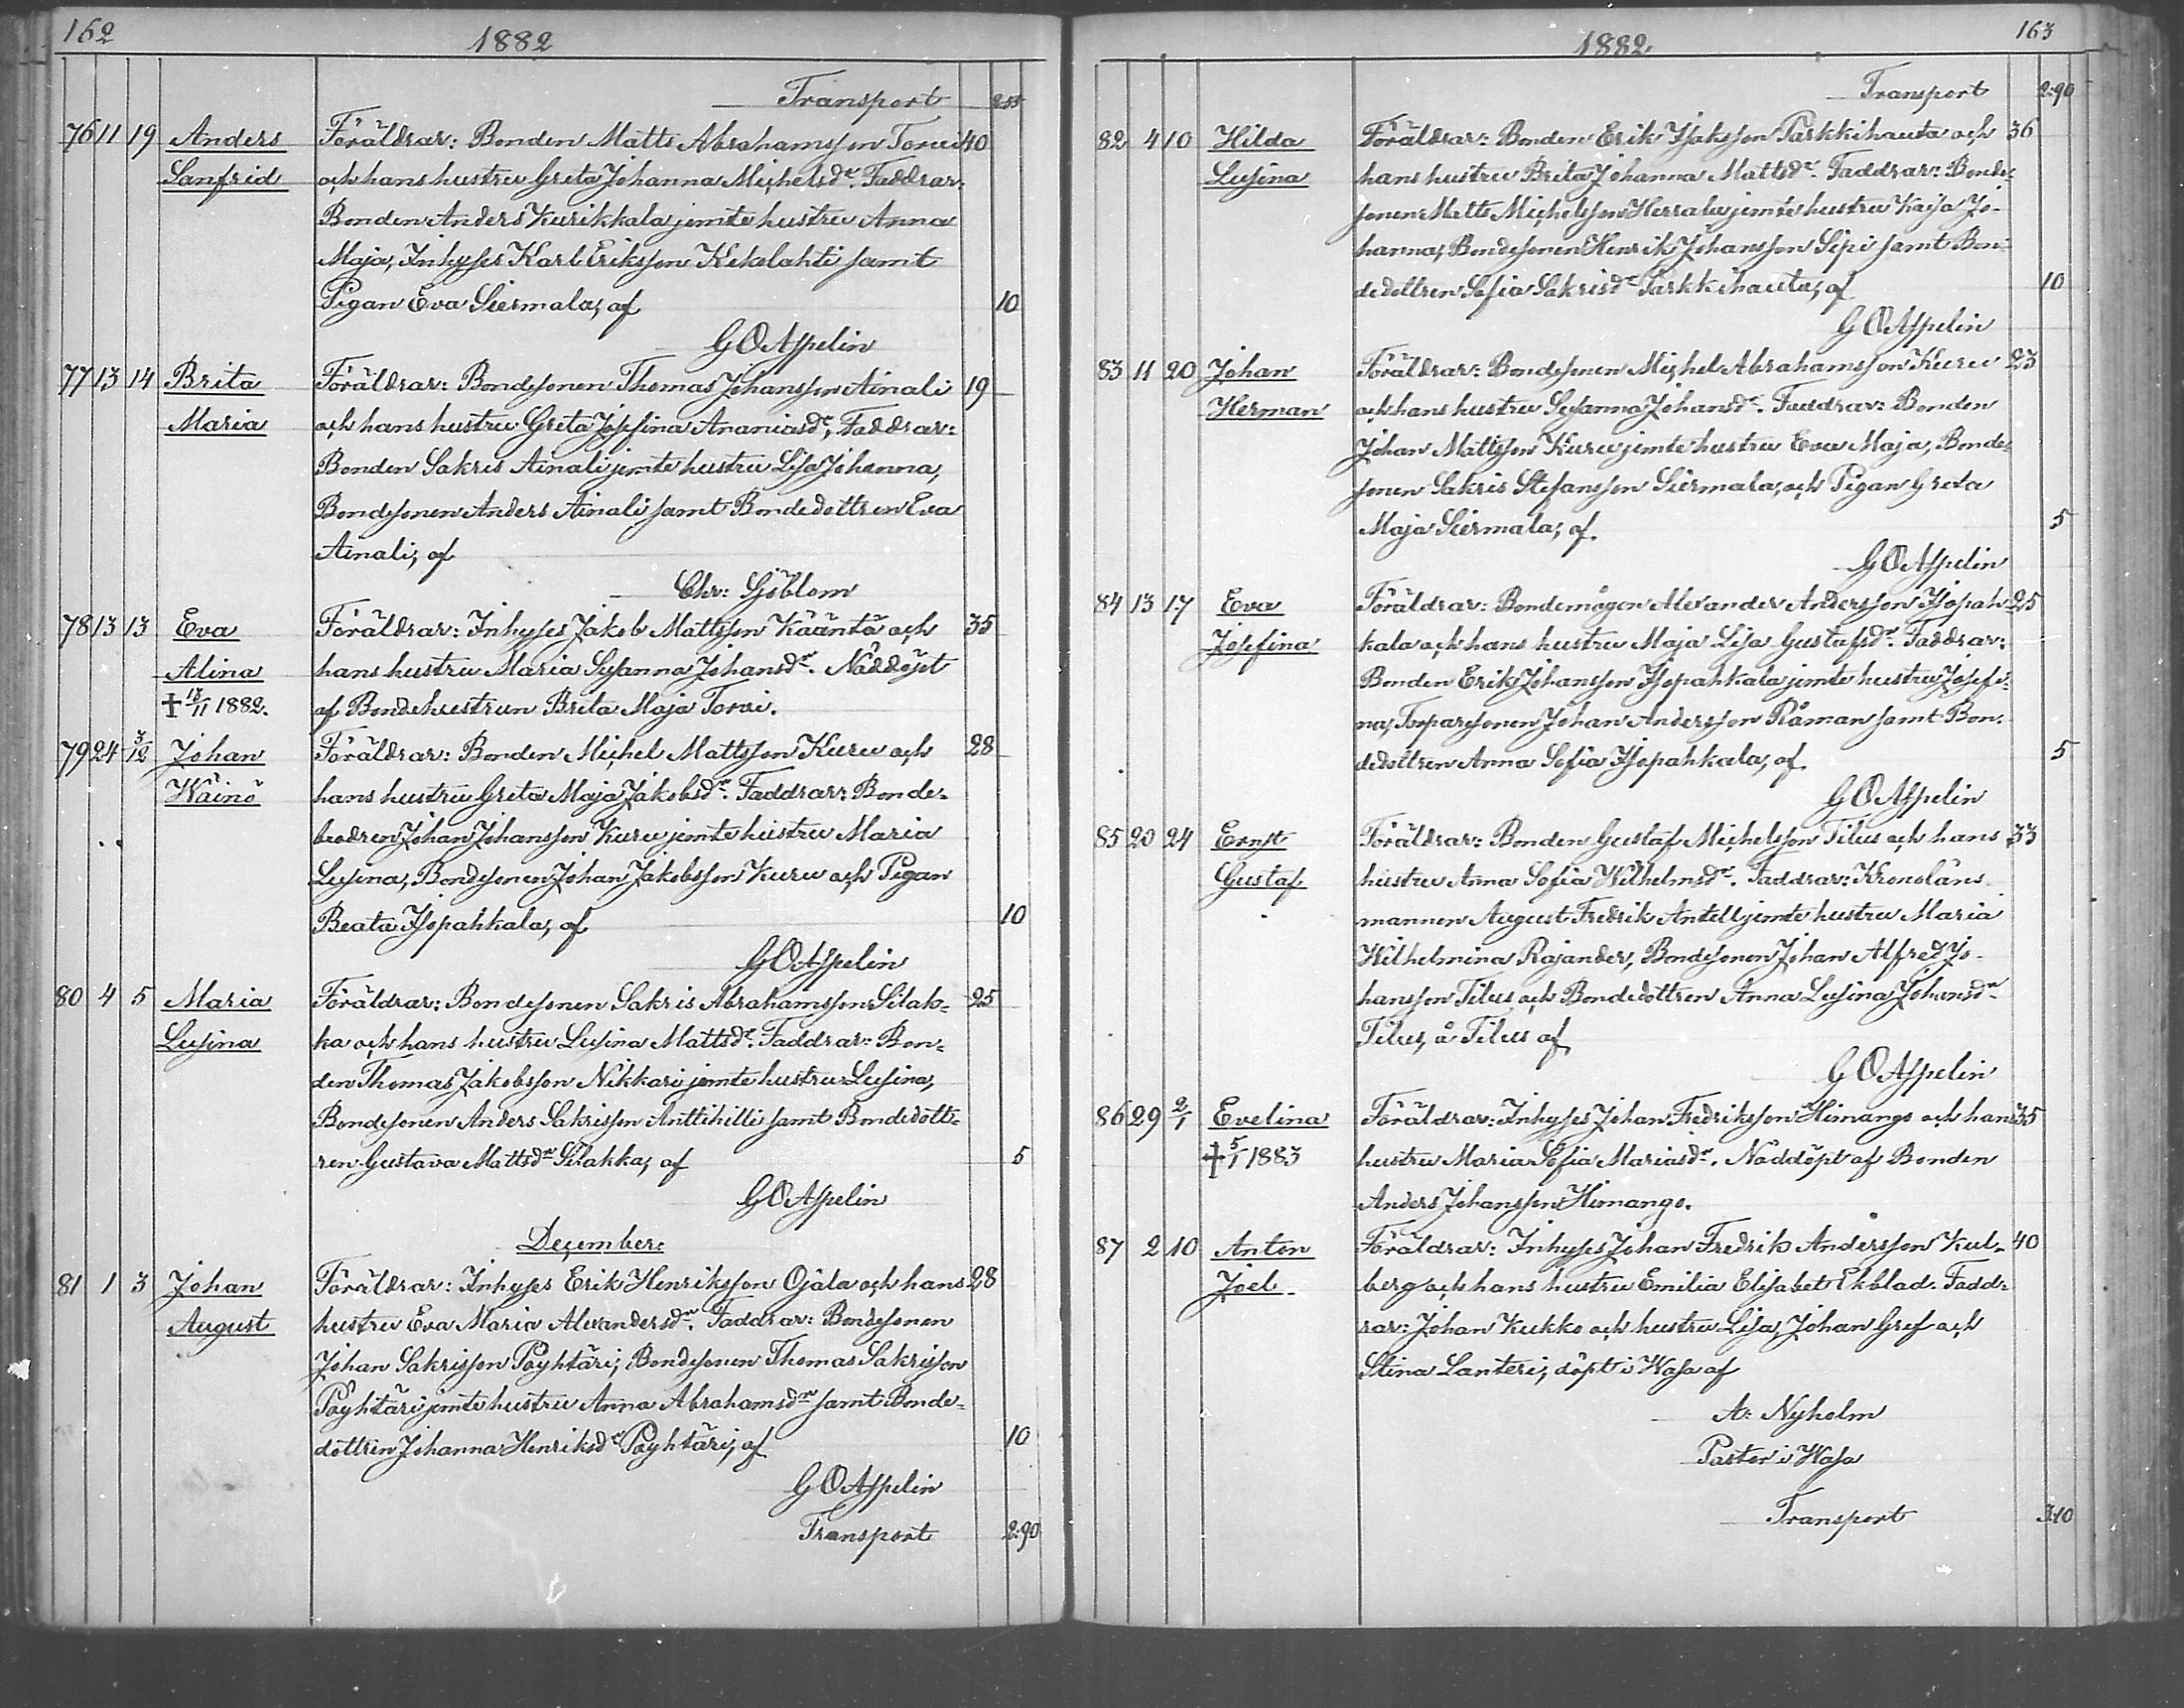 162
1882
Transport 2.55
76 11 19 Anders Föräldrar: Bonden Matts Abrahamsson Torvi 40
Sanfrid och hans hustru Greta Johanna Michelsdr. Faddrar:
Bonden Anders Kurikkala jemte hustru Anna
Maja, Inhyses Karl Eriksson Kekolahti samt
Pigan Eva Siermala, af 10
G O Aspelin
77 13 14 Brita Föräldrar: Bondesonen Thomas Johansson Ainali 19
Maria och hans hustru Greta Josefina Ananiasdr, Faddrar:
Bonden Sakris Ainali jemte hustru Lisa Johanna,
Bondesonen Anders Ainali samt Bondedottren Eva
Ainali, af
Chr: Sjöblom
78 13 13 Eva Föräldrar: Inhyses Jakob Mattsson Kääntä och 35
Alina hans hustru Maria Susanna Johansdr. Nöddöpt
† 13/11 1882. af Bondehustrun Brita Maja Torvi.
79 24 3/12 Johan Föräldrar: Bonden Michel Mattsson Kuru och 28
Wäinö hans hustru Greta Maja Jakobsdr. Faddrar: Bonde-
brodren Johan Johansson Kuru jemte hustru Maria
Lusina, Bondesonen Johan Jakobsson Kuru och Pigan
Beata Isopahkala, af 10
G O Aspelin
80 4 5 Maria Föräldrar: Bondesonen Sakris Abrahamsson Silak- 25
Lusina ka och hans hustru Lusina Mattsdr. Faddrar: Bon-
den Thomas Jakobsson Nikkari jemte hustru Lusina,
Bondesonen Anders Sakrisson Anttihilli samt Bondedott-
ren Gustava Mattsdr Silakka, af 5
G O Aspelin
December:
81 1 3 Johan Föräldrar: Inhyses Erik Henriksson Ojala och hans 28
August hustru Eva Maria Alexandersdr. Faddrar: Bondesonen
Johan Sakrisson Pöyhtäri, Bondesonen Thomas Sakrisson
Pöyhtäri jemte hustru Anna Abrahamsdr samt Bonde-
dottren Johanna Henriksdr Pöyhtäri, af 10
G O Aspelin
Transport 2.90
163
1882
Transport 2.90
82 4 10 Hilda Föräldrar: Bonden Erik Isaksson Parkkihauta och 36
Lusina hans hustru Brita Johanna Mattsdr. Faddrar: Bonde-
sonen Matts Michelsson Herrala jemte hustru Kaisa Jo-
hanna, Bondesonen Henrik Johansson Sipi samt Bon-
dedottren Sofia Sakrisdr Parkkihauta, af 10
G O Aspelin
83 11 20 Johan Föräldrar: Bondesonen Michel Abrahamsson Kuru 23
Herman och hans hustru Susanna Johansdr. Faddrar: Bonden
Johan Mattsson Kuru jemte hustru Eva Maja, Bonde-
sonen Sakris Stefansson Siermala, och Pigan Greta
Maja Siermala, af. 5
G O Aspelin
84 13 17 Eva Föräldrar: Bondemågen Alexander Andersson Isopah- 25
Josefina kala och hans hustru Maja Lisa Gustafsdr. Faddrar:
Bonden Erik Johansson Isopahkala jemte hustru Josefi-
na, Torparesonen Johan Andersson Råman samt Bon-
dedottren Anna Sofia Isopahkala, af. 5
G O Aspelin
85 20 24 Ernst Föräldrar: Bonden Gustaf Michelsson Tilus och hans 33
Gustaf hustru Anna Sofia Wilhelmsdr. Faddrar: Kronoläns-
mannen August Fredrik Antell jemte hustru Maria
Wilhelmina Rajander, Bondesonen Johan Alfred Jo-
hansson Tilus och Bondedottren Anna Lusina Johansdr
Tilus, å Tilus af
G O Aspelin
86 29 2/1 Evelina Föräldrar: Inhyses Johan Fredriksson Himango och hans 35
† 5/1 1883 hustru Maria Sofia Mariasdr. Nöddöpt af Bonden
Anders Johansson Himango.
87 2 10 Anton Föräldrar: Inhyses Johan Fredrik Andersson Kul- 40
Joel berg och hans hustru Emilia Elisabet Ekblad. Fadd-
rar: Johan Kukko och hustru Lisa, Johan Gref och
Stina Lanteri, döpt i Wasa af
A: Nyholm
Pastor i Wasa
Transport 3.10